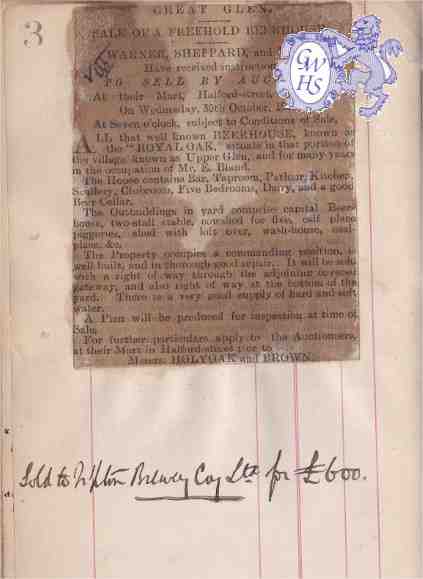 3
GREAT GLEN.
SALE OF A FREEHOLD BEERHOUSE
WARNER, SHEPPARD, and
Have received instruction
TO SELL BY AUC
At their Mart, Halford-street,
On Wednesday, 30th October,
At Seven o'clock, subject to Conditions of Sale,
ALL that well known BEERHOUSE, known as
the "ROYAL OAK," situate in that portion of
the village known as Upper Glen, and for many years
in the occupation of Mr. E. Bland.
The House contains Bar, Taproom, Parlour, Kitchen,
Scullery, Clubroom, Five Bedrooms, Dairy, and a good
Beer Cellar.
The Outbuildings in yard comprise capital Beer-
house, two-stall stable, cowshed for five, calf place
piggeries, shed with loft over, wash-house, coal-
place, &c.
The Property occupies a commanding position, is
well built, and in thorough good repair. It will be sold
with a right of way through the adjoining
gateway, and also right of way at the bottom of the
yard. There is a very good supply of hard and soft
water.
A Plan will be produced for inspection at time of
Sale.
For further particulars apply to the Auctioneers,
at their Mart in Halford-street; or to
Messrs. HOLYOAK and BROWN.
GWHS
Sold to Brewery Coy Ltd for £600.